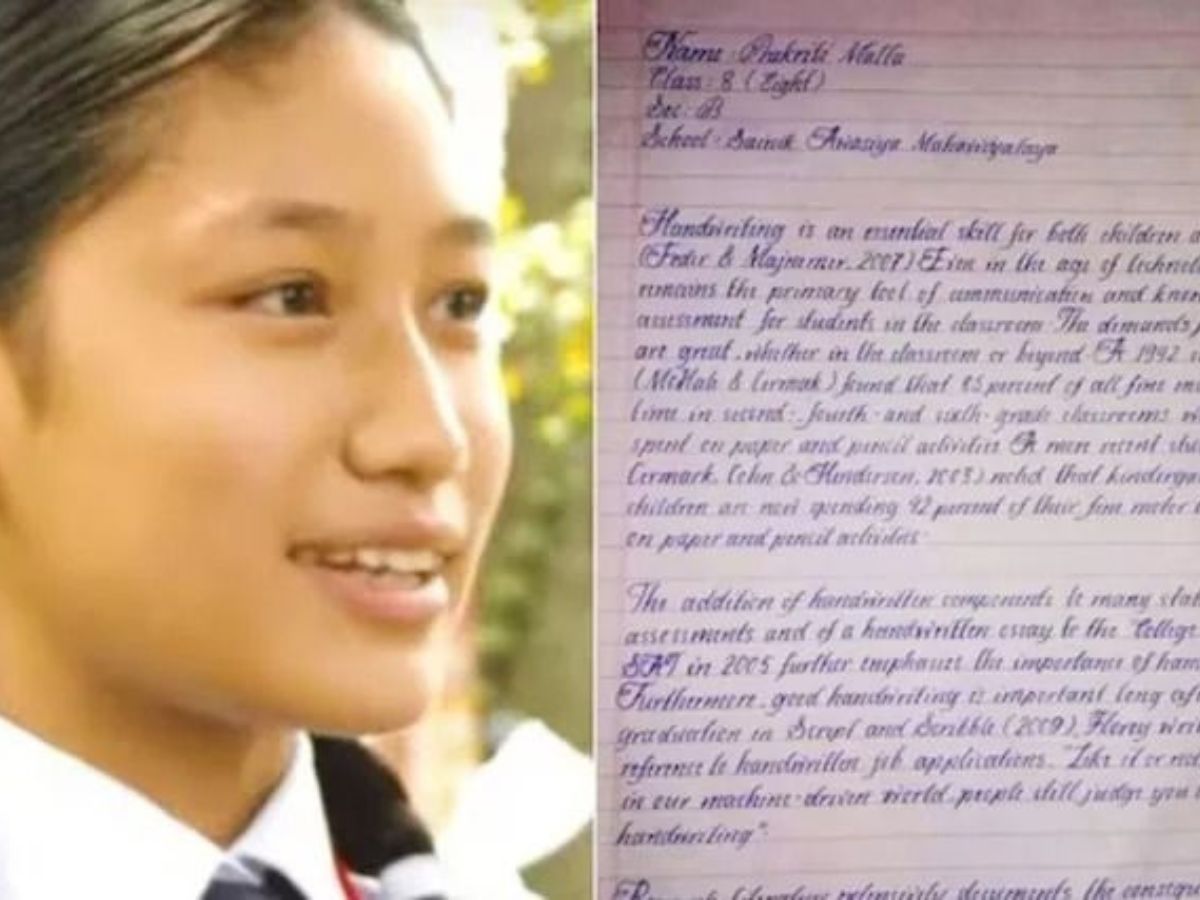 Name : Prakriti Malla
Class : 8 (Eight)
Sec : B
School - Sainik Awasiya Mahavidyalaya
Handwriting is an essential skill for both children a
(Feder & Majnemer, 2007) Even in the age of technol
remains the primary tool of communication and know
assessment for students in the classroom. The demands,
are great, whether in the classroom or beyond. A 1992
(McHale & Cermak) found that 85 percent of all fine mo
time in second-, fourth- and sixth-grade classrooms w
spent on paper and pencil activities. A more recent stu
Cermark, Cohn & Henderson, 2003) noted that kinderga
children are now spending 42 percent of their fine motor
on paper and pencil activities.
The addition of handwritten components to many sta
assessments and of a handwritten essay to the "College
SAT in 2005 further emphasis the importance of han
Furthermore, good handwriting is important long af
graduation in Script and Scribble (2009), Florey writ
reference to handwritten job applications, "Like it or no
in our machine-driven world, people still judge you
handwriting".
extensively documents the conseq